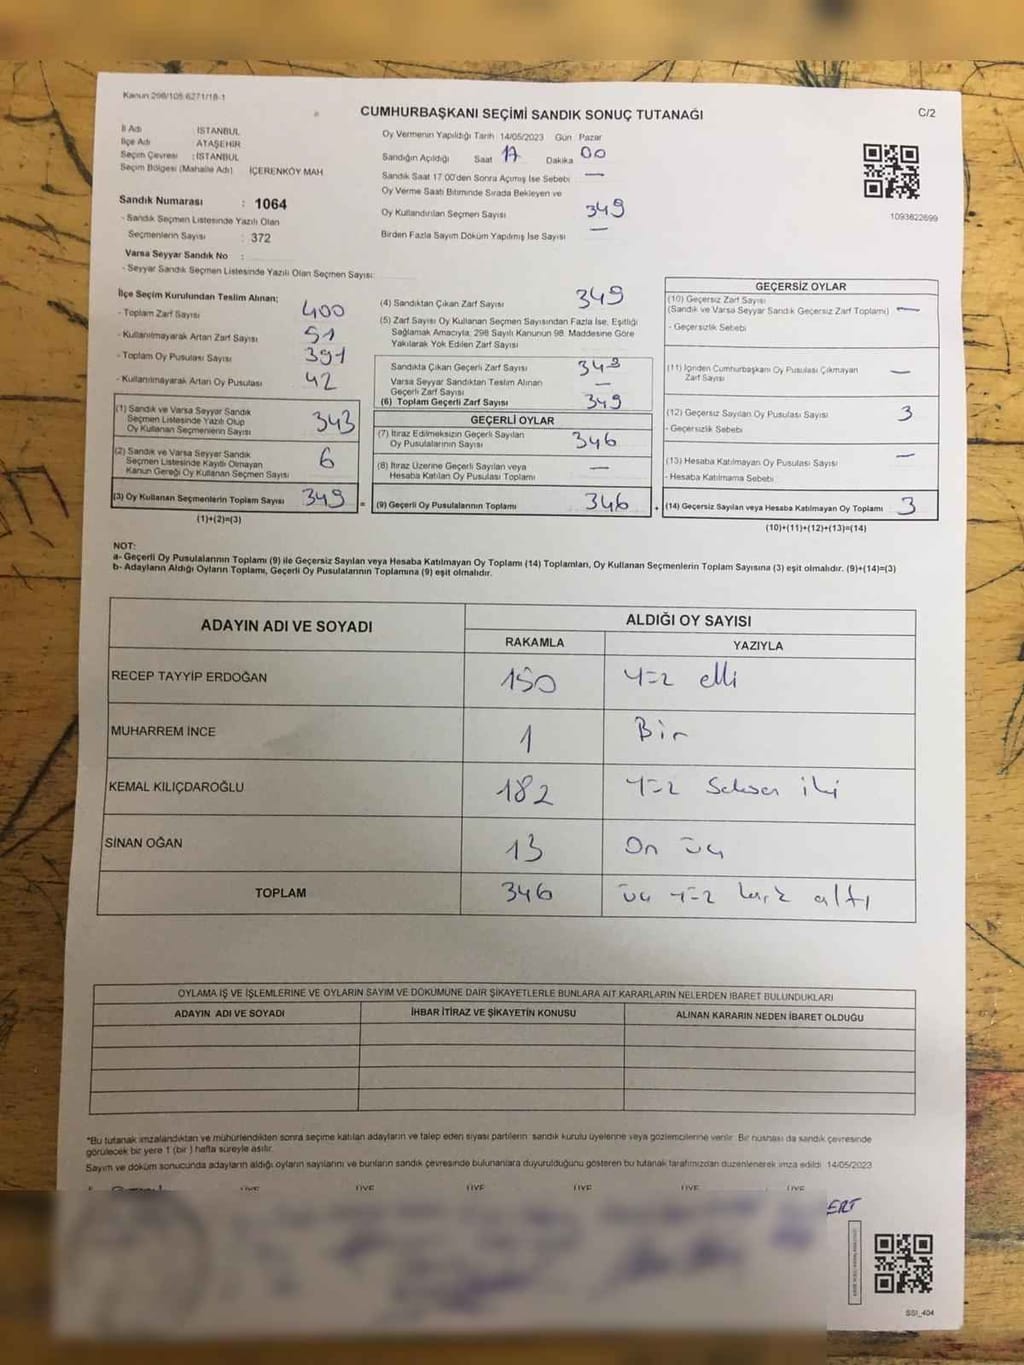 Kanun 298/105 6271/18-1
CUMHURBAŞKANI SEÇİMİ SANDIK SONUÇ TUTANAĞI
C/2
İl Adı İSTANBUL
İlçe Adı ATAŞEHİR
Seçim Çevresi : İSTANBUL
Seçim Bölgesi (Mahalle Adı) İÇERENKÖY MAH
Sandık Numarası : 1064
- Sandık Seçmen Listesinde Yazılı Olan
Seçmenlerin Sayısı : 372
Varsa Seyyar Sandık No :
- Seyyar Sandık Seçmen Listesinde Yazılı Olan Seçmen Sayısı:
Oy Vermenin Yapıldığı Tarih 14/05/2023 Gün Pazar
Sandığın Açıldığı Saat 17 Dakika 00
Sandık Saat 17:00'den Sonra Açımış İse Sebebi —
Oy Verme Saati Bitiminde Sırada Bekleyen ve
Oy Kullandırılan Seçmen Sayısı 349
Birden Fazla Sayım Döküm Yapılmış İse Sayısı —
1093622699
İlçe Seçim Kurulundan Teslim Alınan;
- Toplam Zarf Sayısı 400
- Kullanılmayarak Artan Zarf Sayısı 51
- Toplam Oy Pusulası Sayısı 391
- Kullanılmayarak Artan Oy Pusulası 42
(1) Sandık ve Varsa Seyyar Sandık
Seçmen Listesinde Yazılı Olup
Oy Kullanan Seçmenlerin Sayısı 343
(2) Sandık ve Varsa Seyyar Sandık
Seçmen Listesinde Kayıtlı Olmayan
Kanun Gereği Oy Kullanan Seçmen Sayısı 6
(3) Oy Kullanan Seçmenlerin Toplam Sayısı 349 =
(1)+(2)=(3)
(4) Sandıktan Çıkan Zarf Sayısı 349
(5) Zarf Sayısı Oy Kullanan Seçmen Sayısından Fazla İse, Eşitliği
Sağlamak Amacıyla; 298 Sayılı Kanunun 98. Maddesine Göre
Yakılarak Yok Edilen Zarf Sayısı
Sandıkta Çıkan Geçerli Zarf Sayısı 349
Varsa Seyyar Sandıktan Teslim Alınan
Geçerli Zarf Sayısı —
(6) Toplam Geçerli Zarf Sayısı 349
GEÇERLİ OYLAR
(7) İtiraz Edilmeksizin Geçerli Sayılan
Oy Pusulalarının Sayısı 346
(8) İtiraz Üzerine Geçerli Sayılan veya
Hesaba Katılan Oy Pusulası Toplamı —
(9) Geçerli Oy Pusulalarının Toplamı 346 +
GEÇERSİZ OYLAR
(10) Geçersiz Zarf Sayısı
(Sandık ve Varsa Seyyar Sandık Geçersiz Zarf Toplamı) —
- Geçersizlik Sebebi
(11) İçinden Cumhurbaşkanı Oy Pusulası Çıkmayan
Zarf Sayısı —
(12) Geçersiz Sayılan Oy Pusulası Sayısı 3
- Geçersizlik Sebebi
(13) Hesaba Katılmayan Oy Pusulası Sayısı —
- Hesaba Katılmama Sebebi
(14) Geçersiz Sayılan veya Hesaba Katılmayan Oy Toplamı 3
(10)+(11)+(12)+(13)=(14)
NOT:
a- Geçerli Oy Pusulalarının Toplamı (9) ile Geçersiz Sayılan veya Hesaba Katılmayan Oy Toplamı (14) Toplamları, Oy Kullanan Seçmenlerin Toplam Sayısına (3) eşit olmalıdır. (9)+(14)=(3)
b- Adayların Aldığı Oyların Toplamı, Geçerli Oy Pusulalarının Toplamına (9) eşit olmalıdır.
ADAYIN ADI VE SOYADI
ALDIĞI OY SAYISI
RAKAMLA YAZIYLA
RECEP TAYYİP ERDOĞAN 150 Yüz elli
MUHARREM İNCE 1 Bir
KEMAL KILIÇDAROĞLU 182 Yüz Seksen iki
SİNAN OĞAN 13 On üç
TOPLAM 346 üç yüz kırk altı
OYLAMA İŞ VE İŞLEMLERİNE VE OYLARIN SAYIM VE DÖKÜMÜNE DAİR ŞİKAYETLERLE BUNLARA AİT KARARLARIN NELERDEN İBARET BULUNDUKLARI
ADAYIN ADI VE SOYADI İHBAR İTİRAZ VE ŞİKAYETİN KONUSU ALINAN KARARIN NEDEN İBARET OLDUĞU
*Bu tutanak imzalandıktan ve mühürlendikten sonra seçime katılan adayların ve talep eden siyasi partilerin sandık kurulu üyelerine veya gözlemcilerine verilir. Bir nüshası da sandık çevresinde
görülecek bir yere 1 (bir ) hafta süreyle asılır.
Sayım ve döküm sonucunda adayların aldığı oyların sayılarını ve bunların sandık çevresinde bulunanlara duyurulduğunu gösteren bu tutanak tarafımızdan düzenlenerek imza edildi 14/05/2023
ÜYE ÜYE ÜYE ÜYE ÜYE ÜYE
ERT
SSI_404